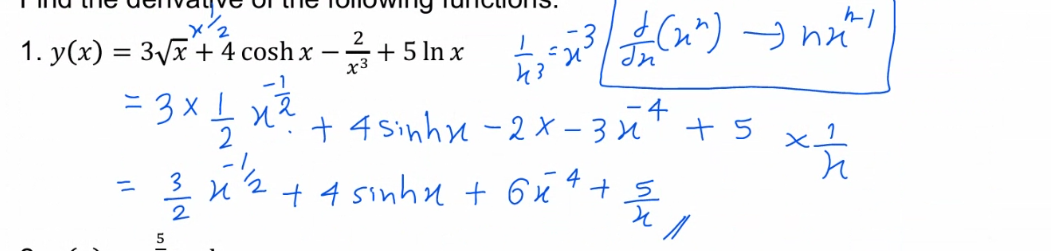 Find the derivative of the following functions.
x^1/2
1. y(x) = 3√x + 4 cosh x − 2/x³ + 5 ln x
1/x³ = x⁻³
d/dx (xⁿ) → nxⁿ⁻¹
= 3 × 1/2 x^-1/2 + 4 sinhx − 2 × −3x⁻⁴ + 5 × 1/x
= 3/2 x^-1/2 + 4 sinhx + 6x⁻⁴ + 5/x //
5